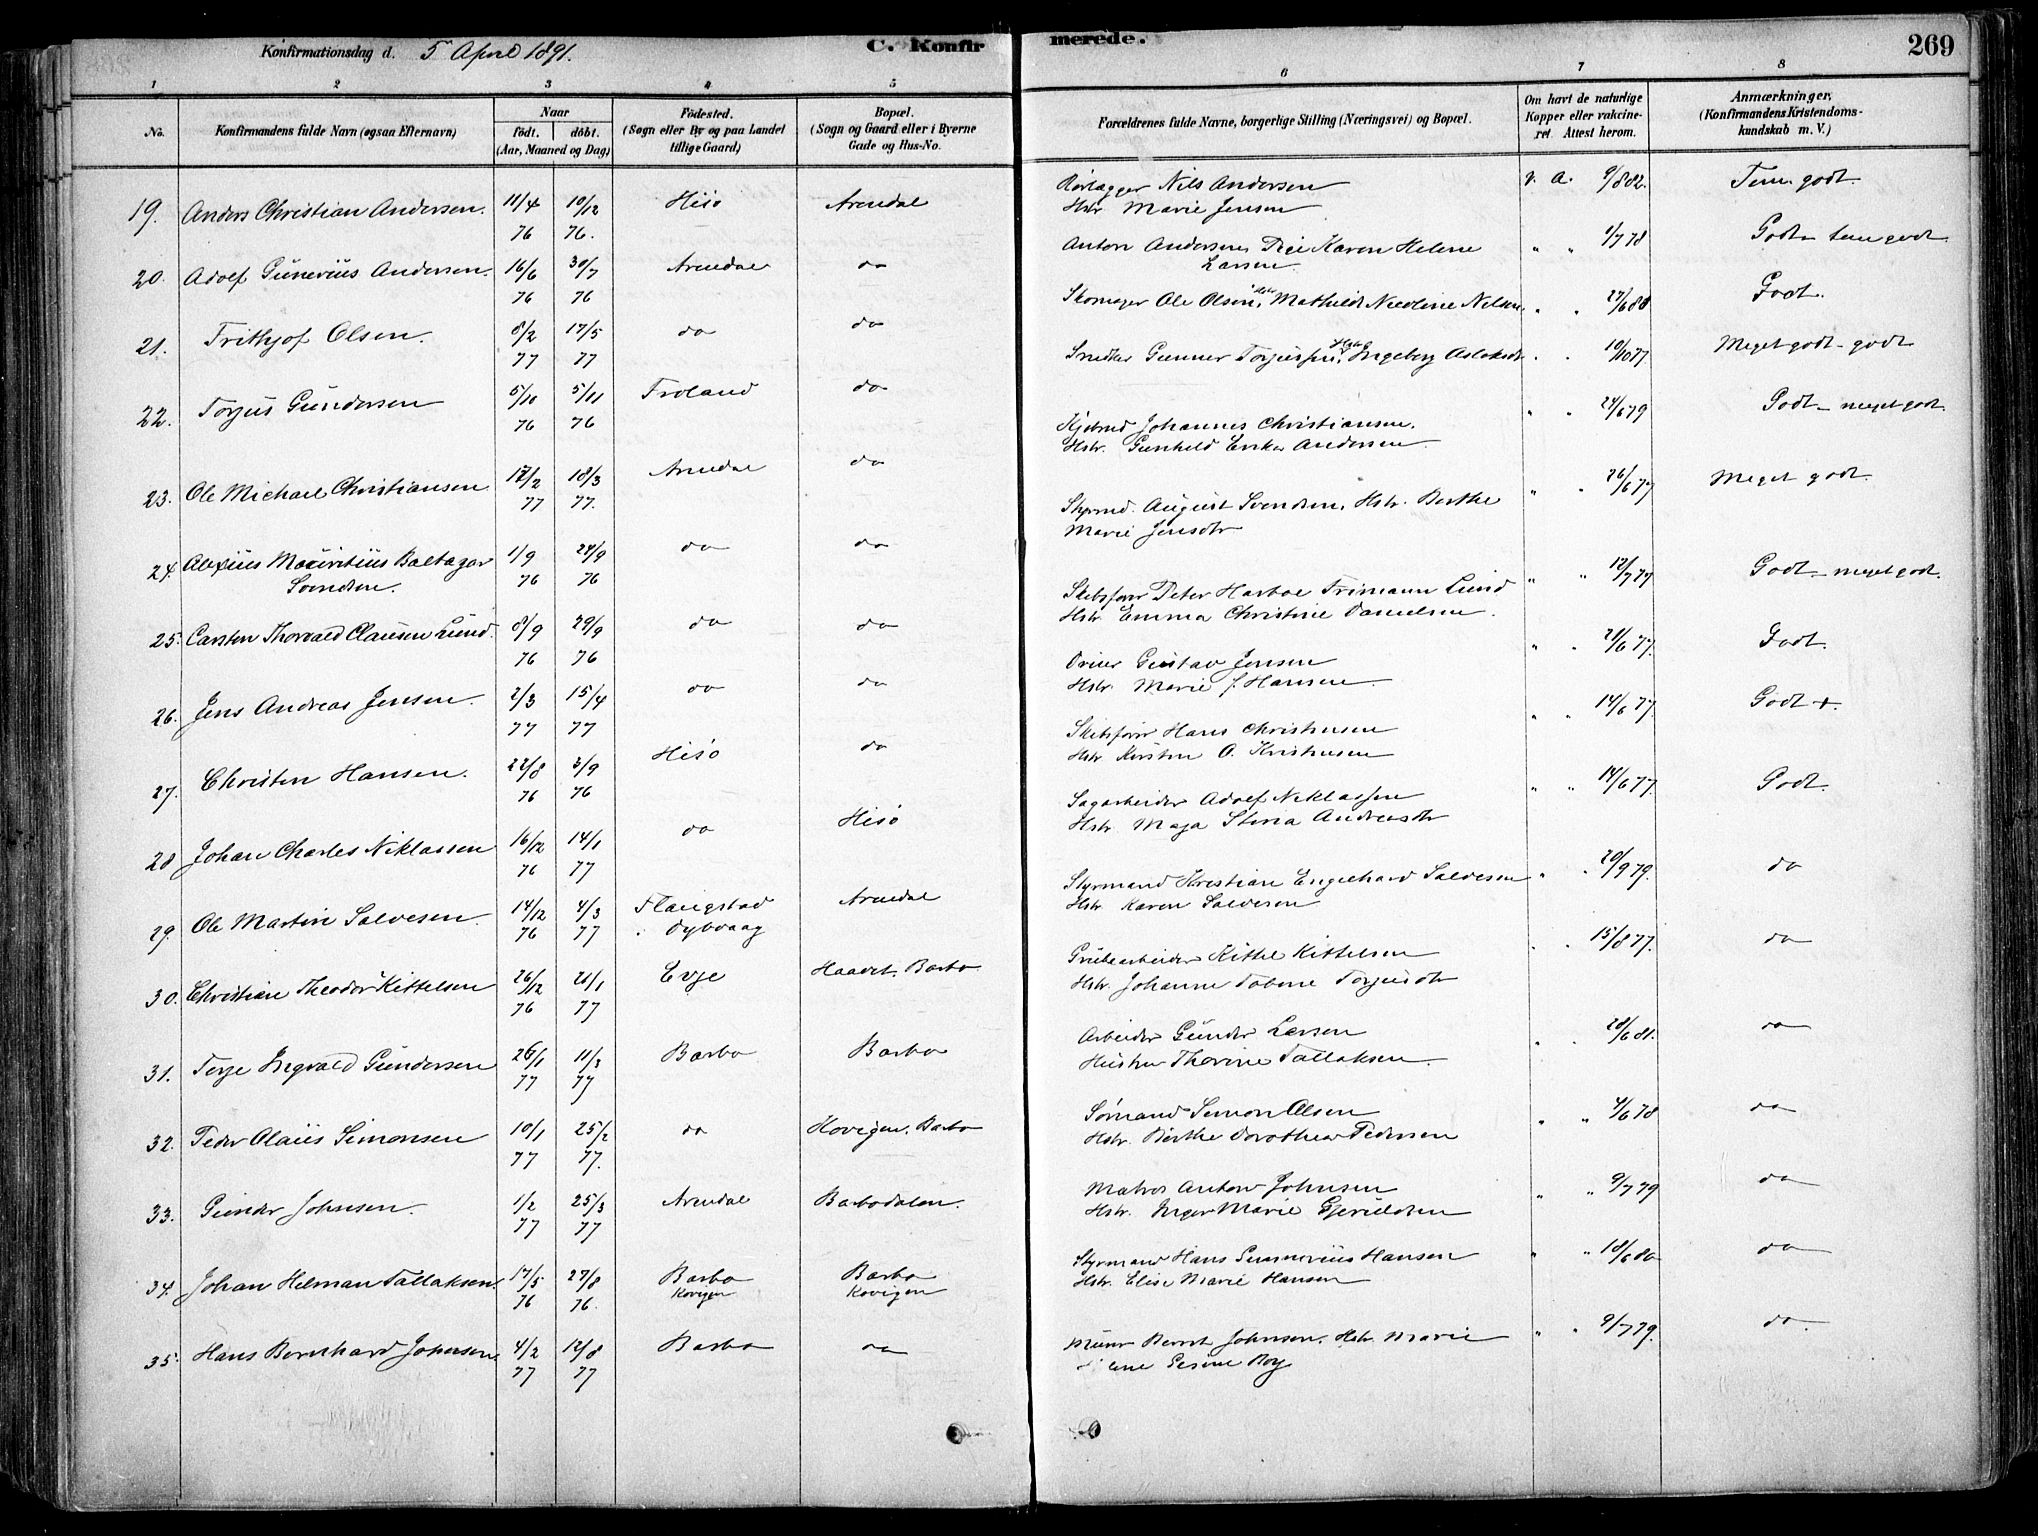 Konfirmationsdag d. 5 April 1891.
C. Konfirmerede.
269
1 2 3 4 5 6 7 8
No.
Konfirmandens fulde Navn (ogsaa Efternavn)
Naar
født. døbt.
(Aar, Maaned og Dag)
Fødested.
(Sogn eller By og paa Landet
tillige Gaard)
Bopæl.
(Sogn og Gaard eller i Byerne
Gade og Hus-No.
Forældrenes fulde Navne, borgerlige Stilling (Næringsvei) og Bopæl.
Om havt de naturlige
Kopper eller vakcine-
ret. Attest herom.
Anmærkninger,
(Konfirmandens Kristendoms-
kundskab m. V.)
19. Anders Christian Andersen. 11/4 76 10/12 76. Hisö Arendal
Rørlægger Nils Andersen
Hstr Marie Jensen
v. a. 9/8 82. Tem. godt.
20. Adolf Gunerius Andersen. 16/6 76 30/7 76 Arendal do
Anton Andersen, Pige Karen Helene
Larsen
" " 1/7 78 Godt - tem godt
21. Frithjof Olsen. 8/2 77 17/5 77 do do
Skomager Ole Olsen, Hstr Mathilde Nicoline Nilsen.
" " 27/6 88 Godt.
22. Torjus Gundersen 5/10 76 5/11 76 Froland do
Snedker Gunner Torjussen, Ingeborg Aslaksdr
" " 10/10 77 Meget godt - godt
23. Ole Michael Christiansen 17/2 77 18/3 77. Arendal do
Kjøbmd Johannes Christiansen.
Hstr. Gunhild Andersen
" " 24/6 79 Godt - meget godt.
24. Alexius Mauritius Baltazar
Svendsen. 1/9 76 24/9 76 do do
Styrmd. August Svendsen, Hstr. Berthe
Marie Jensdtr
" " 26/6 77 Meget godt.
25. Carsten Thorvald Clausen Lund. 8/9 76 29/9 76 do do
Skibsfører Peter Harboe Trimann Lund
Hstr. Emma Christine Danielsen.
" " 12/7 77 Godt - meget godt.
26. Jens Andreas Jensen. 2/3 77 15/4 77 do do
Gustav Jensen
Hstr. Marie J. Hansen.
" " 21/6 77. Godt.
27. Christen Hansen. 22/8 76 3/9 76 Hisö do
Skibsfører Hans Christensen
Hstr Kirsten O. Kristensen
" " 14/6 77. Godt +.
28 Johan Charles Niklassen 16/12 76 14/1 77 do Hisö
Sagarbeider Adolf Niklassen
Hstr. Maja Stina Andreasdtr
" " 14/6 77. Godt.
29. Ole Martin Salvesen. 14/12 76 4/3 77 Flangstad
Dybvaag Arendal
Styrmand Kristian Engelhard Salvesen
Hstr Karen Salvesen
" " 20/9 79. do
30. Christian Theodor Kittelsen 26/12 76 21/1 77 Evje Haavet. Barbo
Grubearbeider Kittel Kittelsen
Hstr. Johanne Tobine Torjusdtr
" " 15/8 77. do
31. Terje Ingvald Gundersen 26/1 77 11/3 77 Barbo Barbo
Arbeider Gunder Larsen
Hustru Thorine Tallaksen.
" " 28/6 81. do
32. Peder Olaüs Simonsen 10/1 77 25/2 77. do Kovigen. Barbo
Sømand Simon Olsen
Hstr. Berthe Dorothea Pedersen
" " 4/6 78 do
33. Gunder Johnsen. 1/2 77 25/3 77 Arendal Barbodalen.
Matros Anton Johnsen
Hstr. Inger Marie Gjeruldsen
" " 9/7 79 do
34. Johan Helman Tallaksen. 17/5 76 27/8 76. Barbo
Kovigen Barbo
Kovigen
Styrmand Hans Gunnerius Hansen
Hstr. Elise Marie Hansen
" " 18/6 80 do
35. Hans Bernhard Johnsen. 4/2 77 12/8 77 Barbo do
Murer Bernt Johnsen. Hstr Marie
Boy
" " 9/7 79. do.